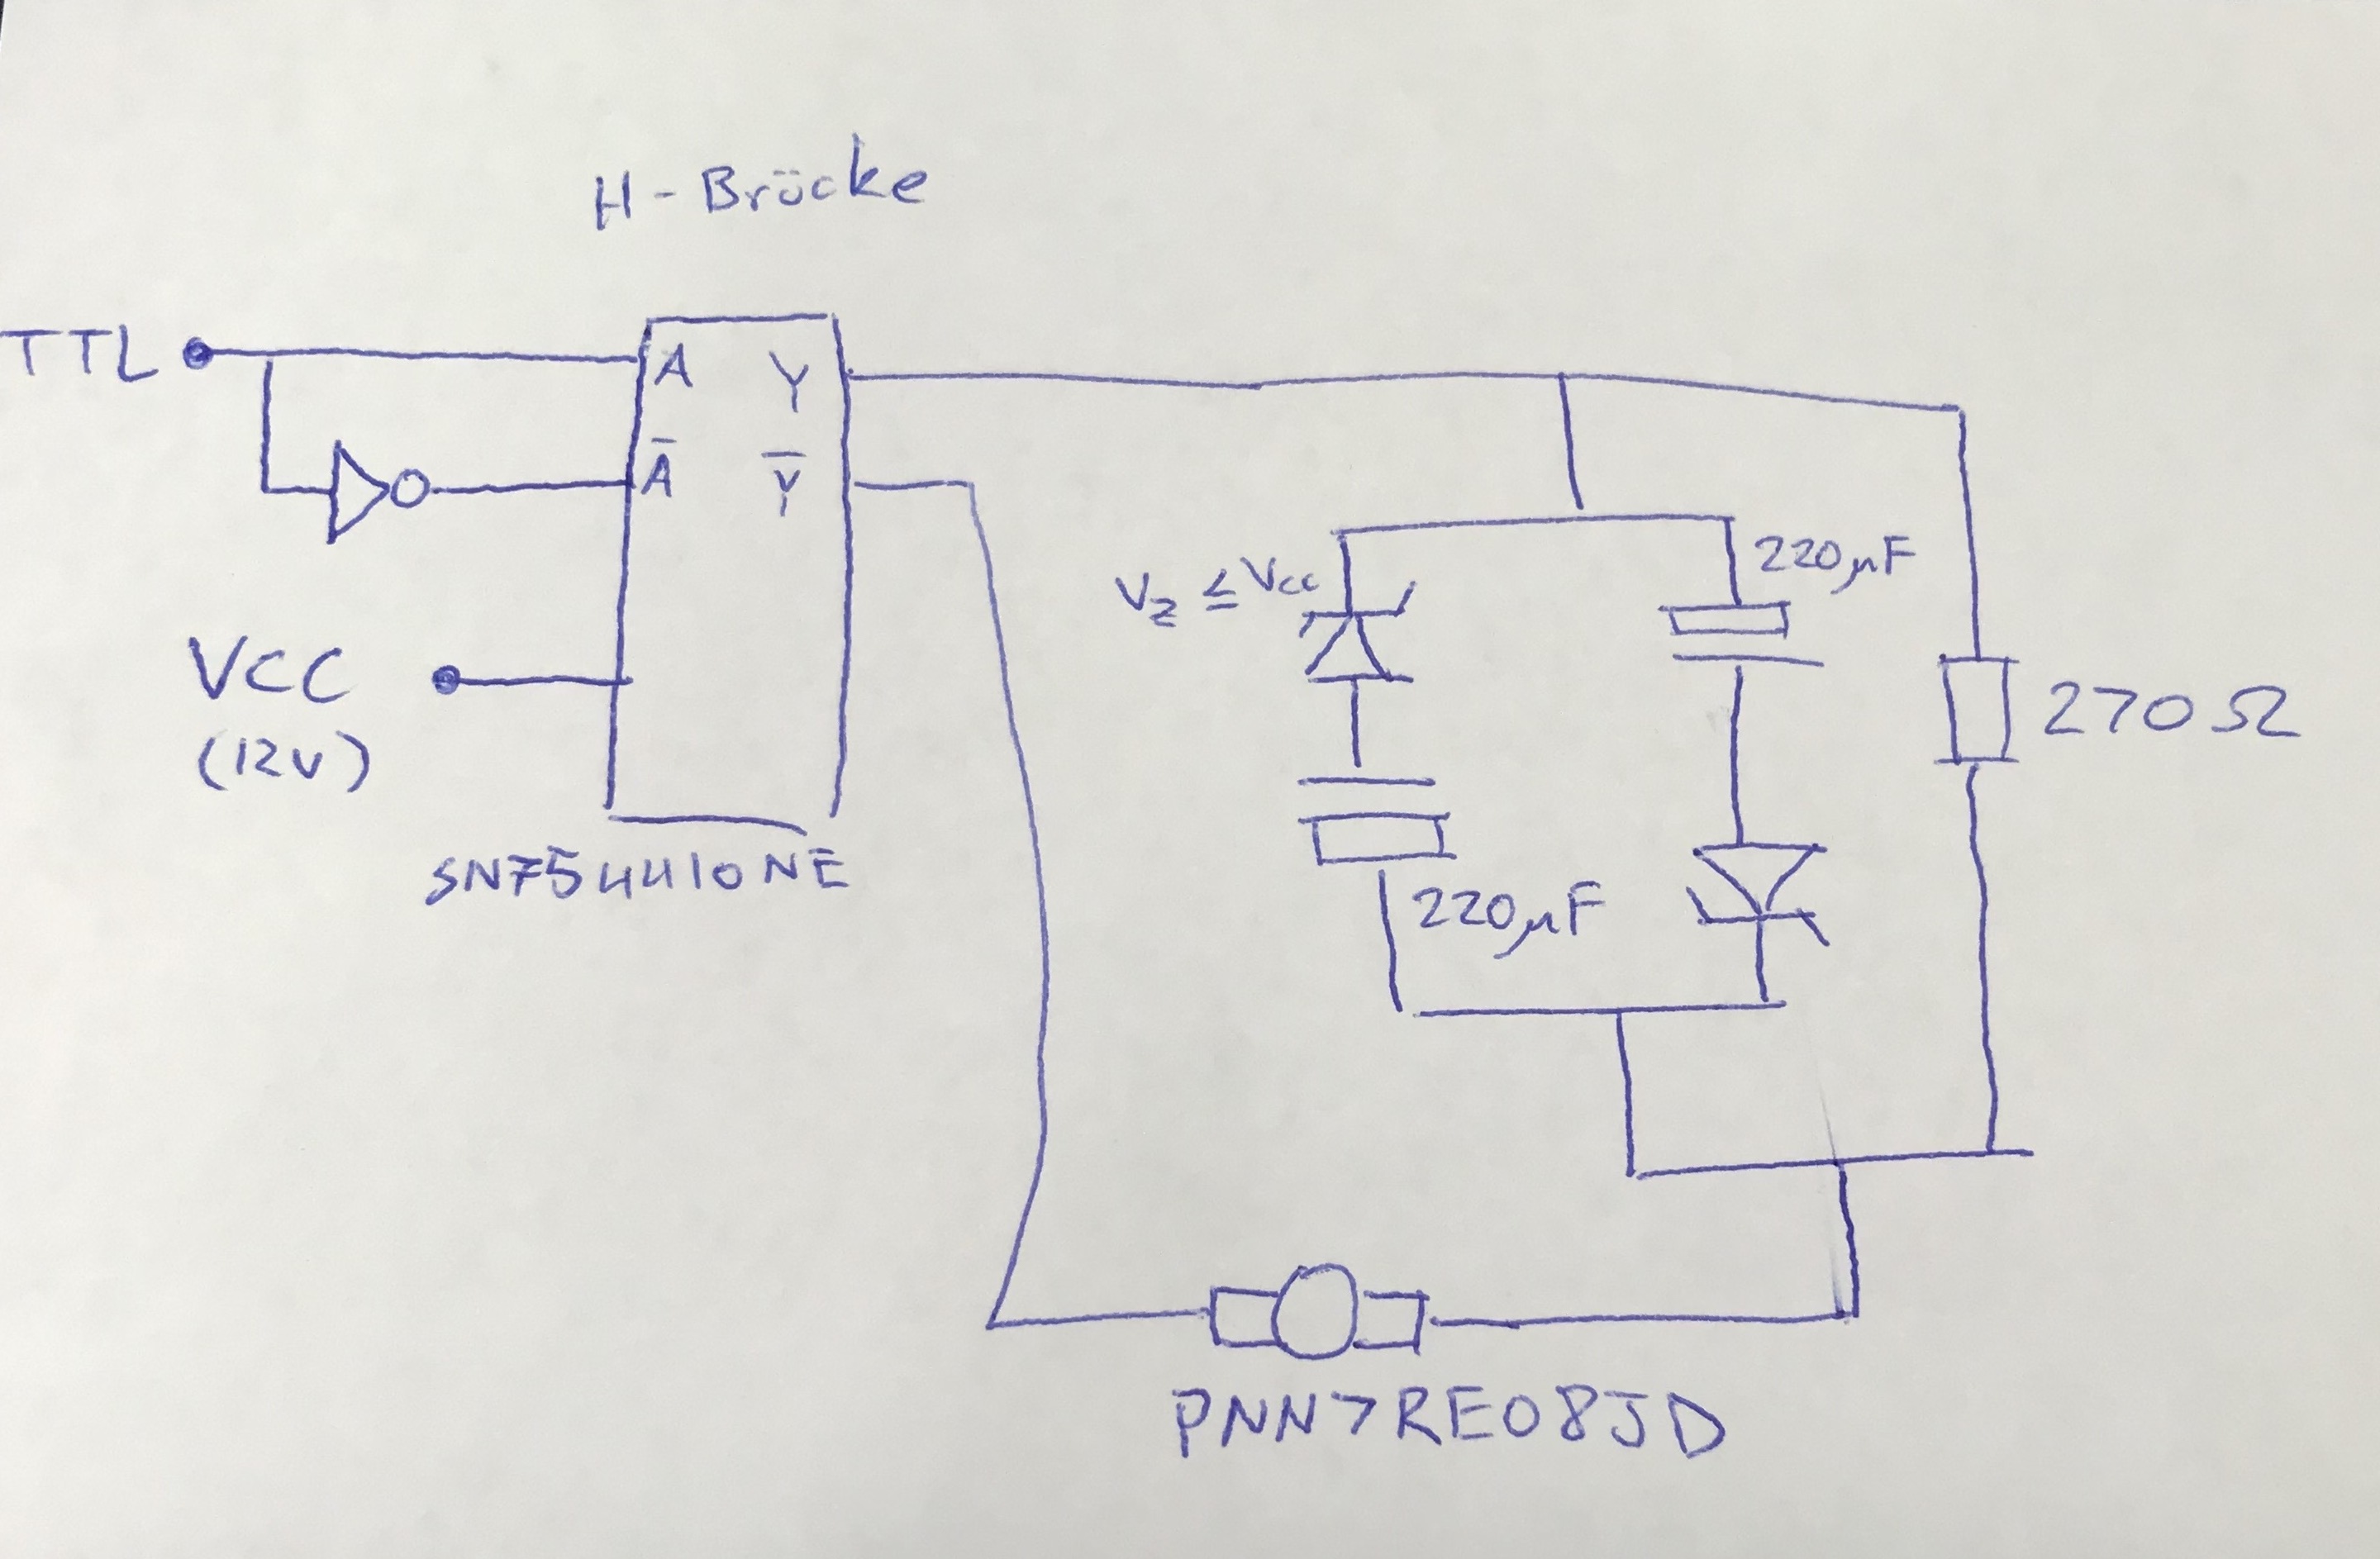 H-Brücke
TTL
A Y
Ā Y̅
VCC
(12V)
SN754410NE
Vz ≤ Vcc
220µF
270Ω
220µF
PNN7RE08JD